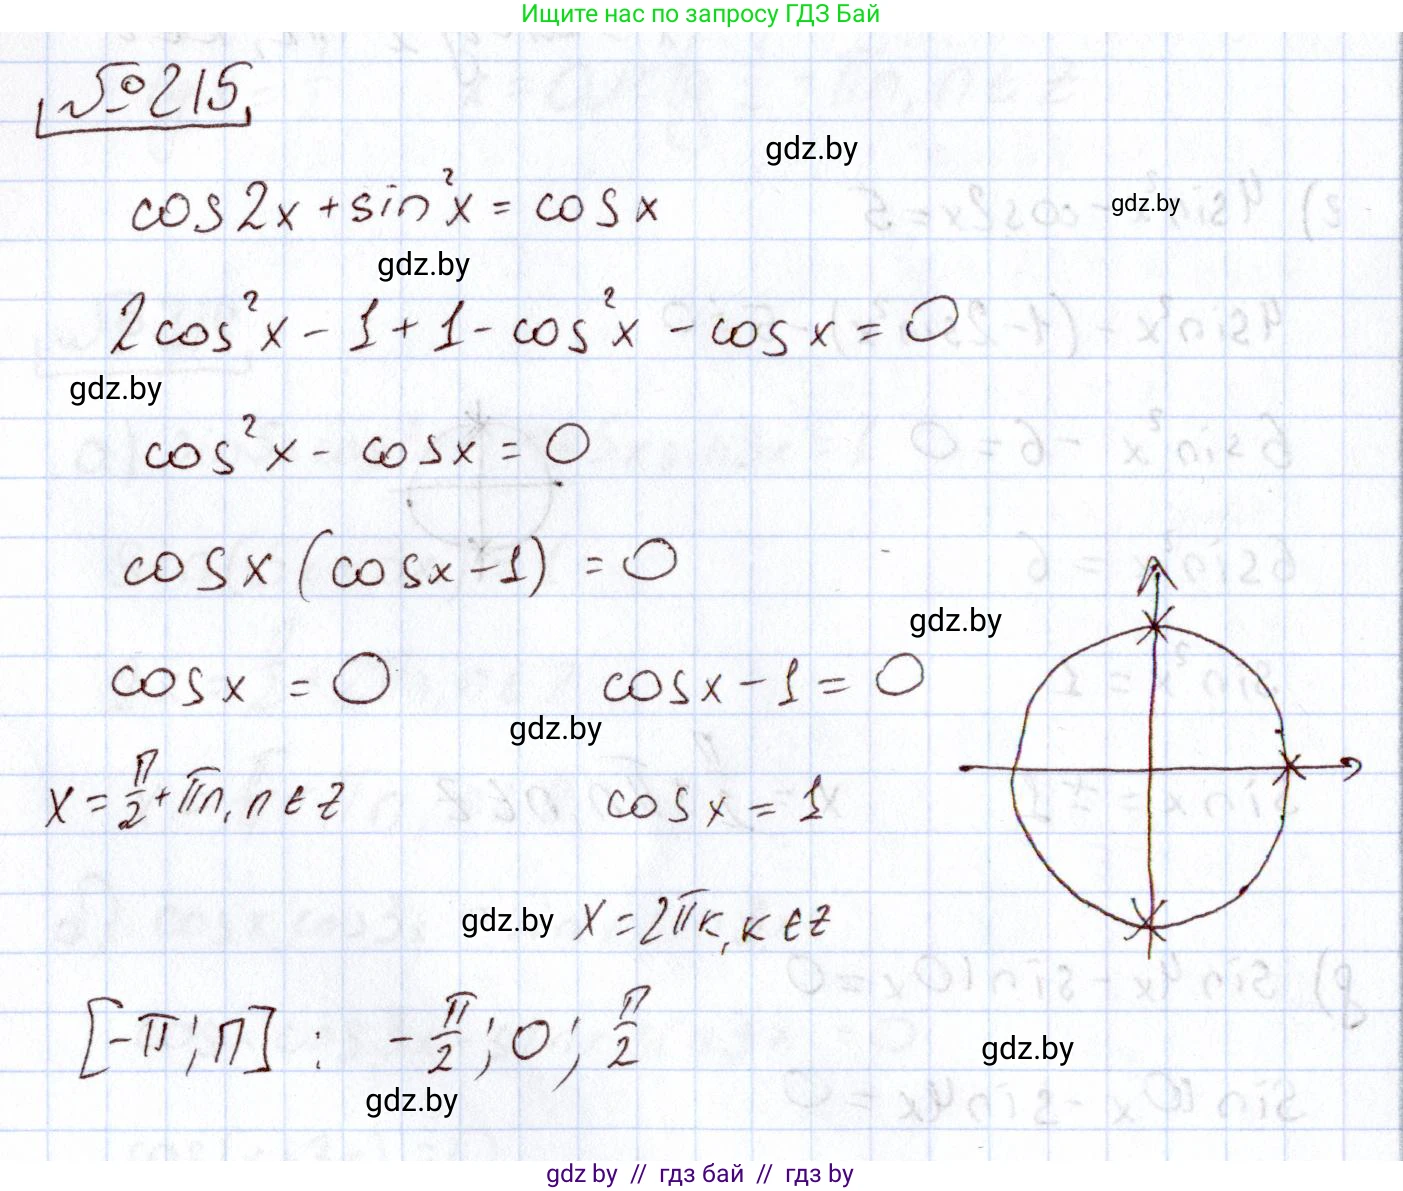 Ищите нас по запросу ГДЗ Бай
№215
gdz.by
cos2x + sin²x = cosx
gdz.by
gdz.by
2cos²x - 1 + 1 - cos²x - cosx = 0
gdz.by
cos²x - cosx = 0
cosx (cosx - 1) = 0
gdz.by
cosx = 0 cosx - 1 = 0
gdz.by
x = π/2 + πn, n ∈ Z cosx = 1
gdz.by x = 2πk, k ∈ Z
[-π; π] : -π/2; 0; π/2
gdz.by
gdz.by
gdz by // гдз бай // гдз by